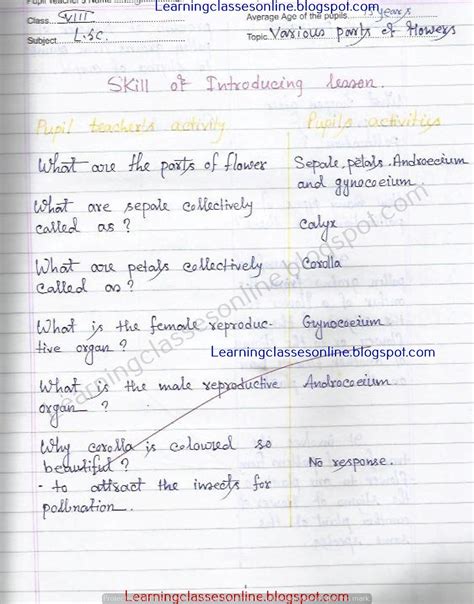 Pupil Teacher's Name
Learningclassesonline.blogspot.com
Class VIII
Average Age of the pupils 13 years
Subject L.Sc.
Topic Various parts of flowers
Skill of Introducing lesson.
Pupil teacher's activity
Pupil's activitiys
What are the parts of flower
Sepale, petals, Androecium
and gynocoeium
What are sepale collectively
called as?
Calyx
What are petals collectively
called as?
Corolla
What is the female reproduc-
tive organ?
Gynocoeium
Learningclassesonline.blogspot.com
What is the male reproductive
organ?
Androcoeium
Why corolla is coloured so
beautiful?
No response.
- to attract the insects for
pollination.
learningclassesonline.blogspot.com
Learningclassesonline.blogspot.com